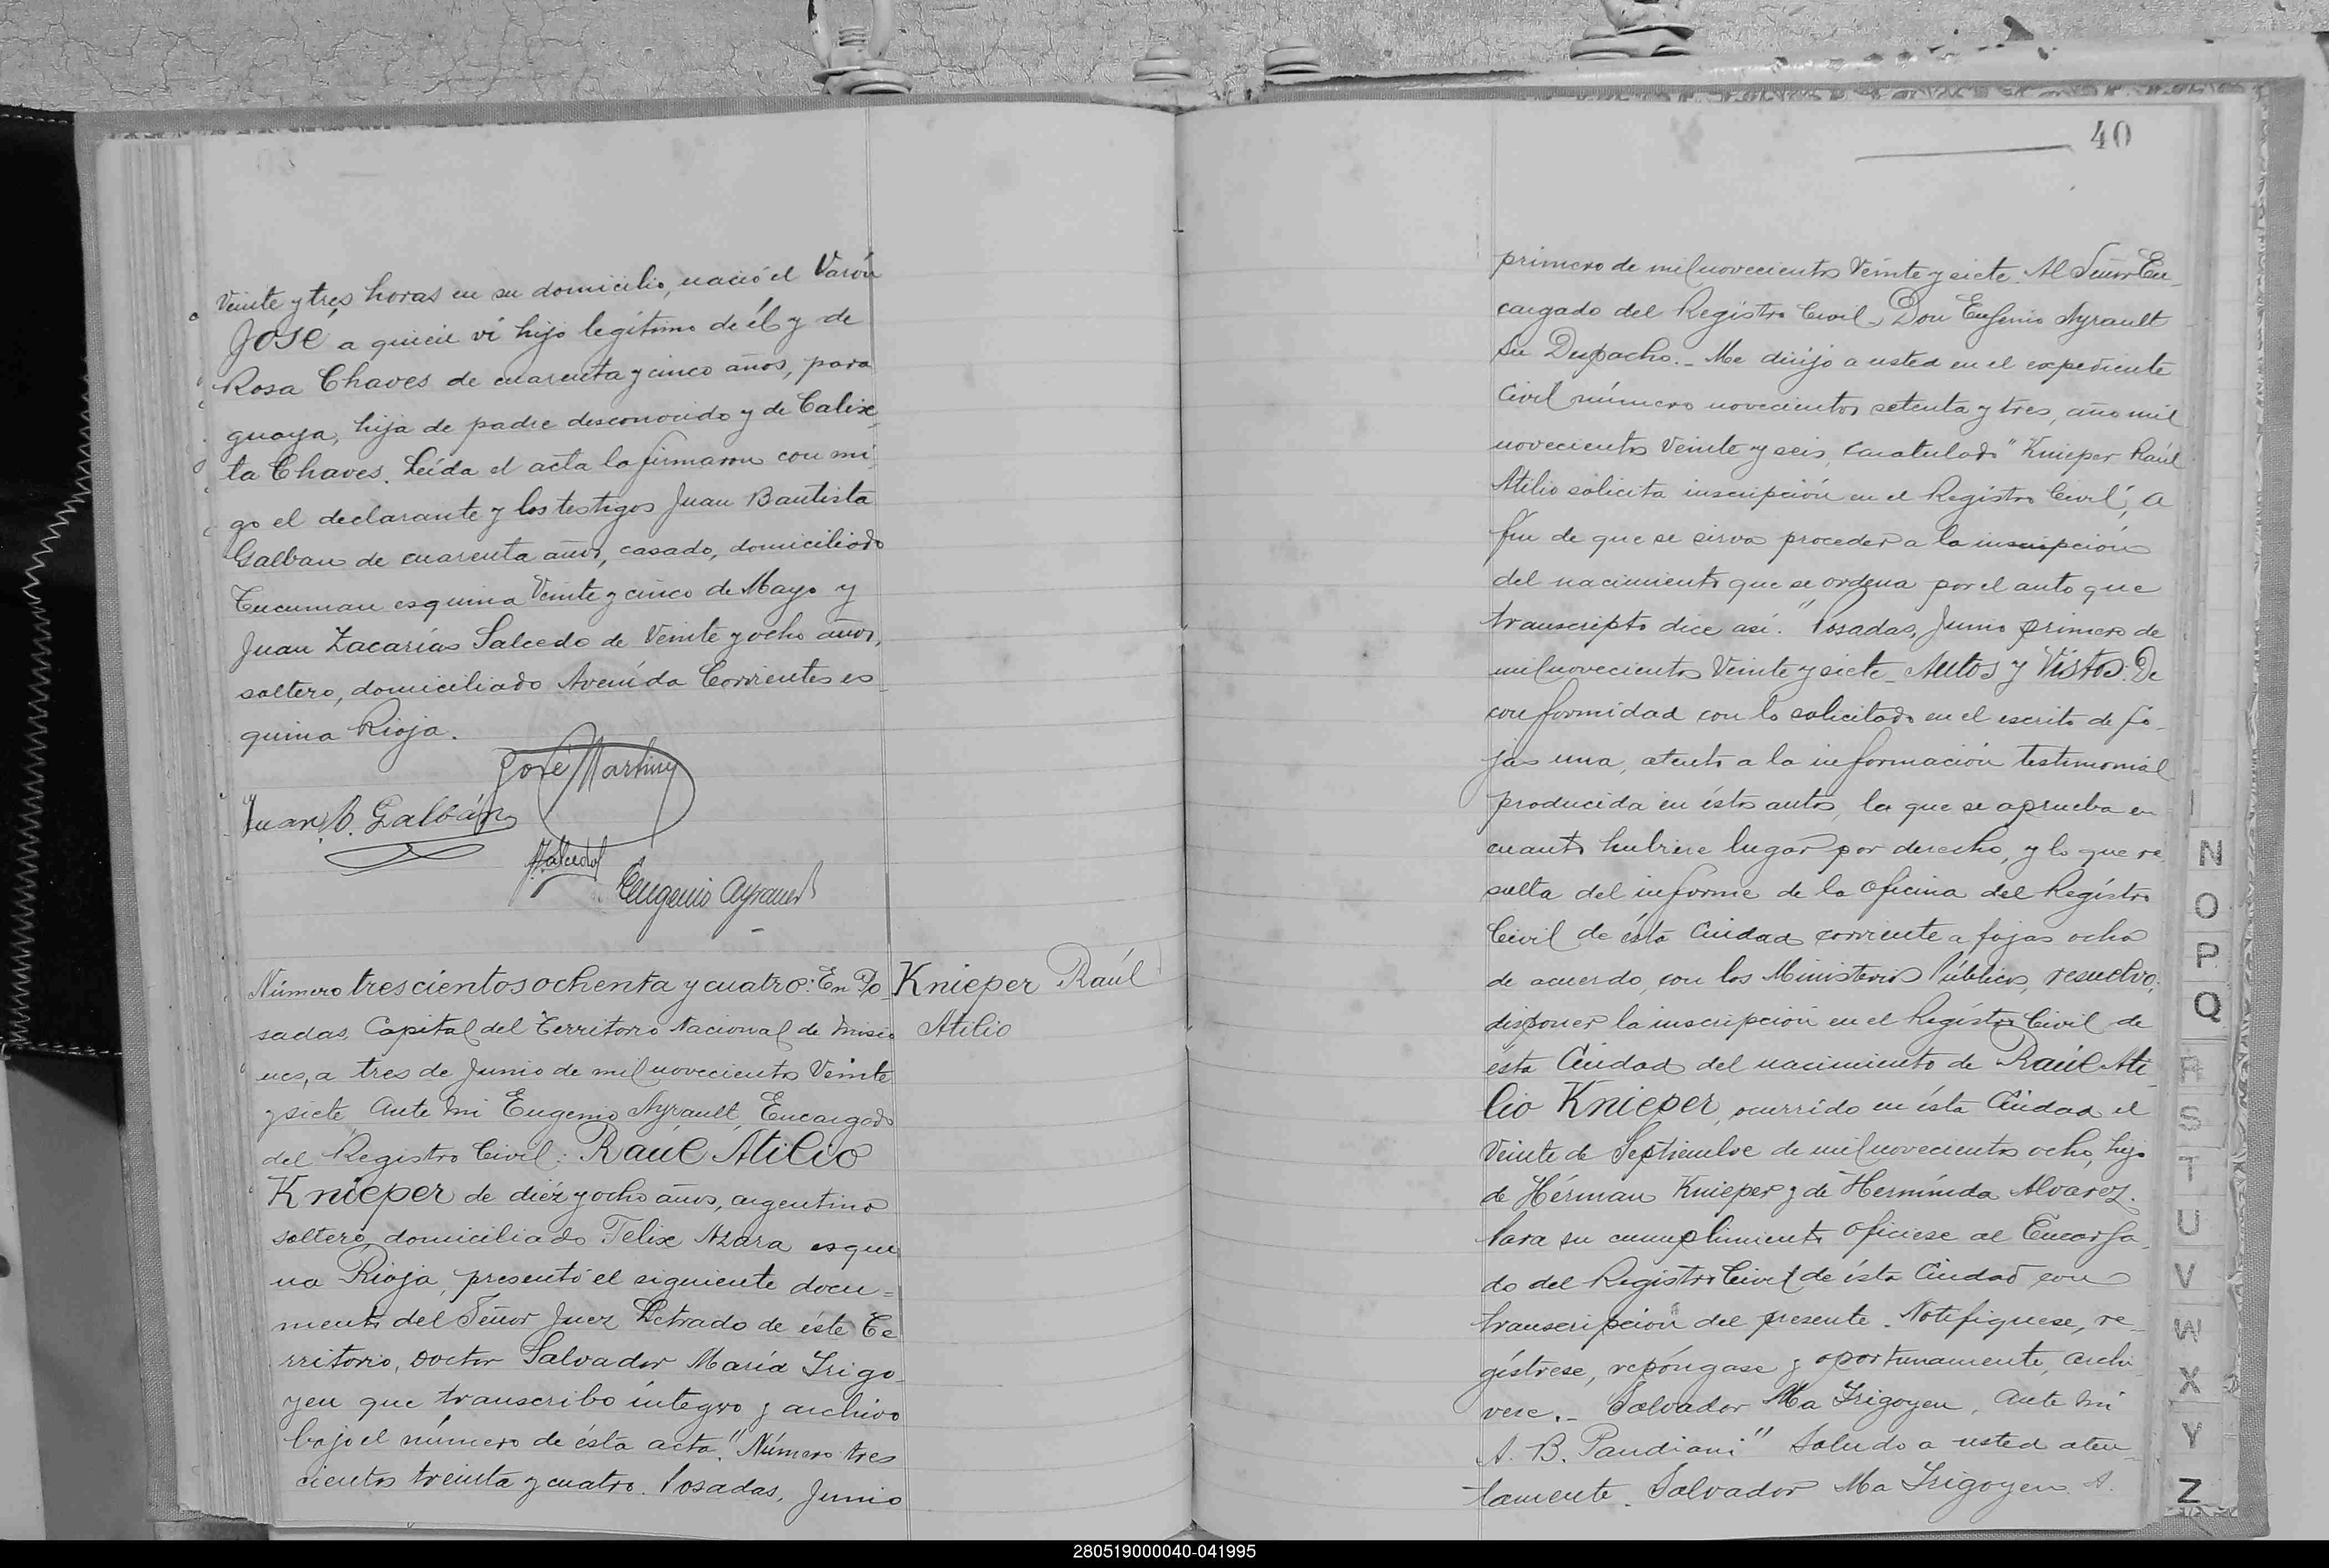 Veinte y tres horas en su domicilio, nació el Varón
José, a quien ví hijo legítimo de él y de
Rosa Chaves de cuarenta y cinco años, para
guaya, hija de padre desconocido y de Calix-
ta Chaves. Leída el acta la firmaron con mi
go el declarante y los testigos Juan Bautista
Galban de cuarenta años, casado, domiciliado
Tucuman esquina Veinte y cinco de Mayo y
Juan Zacarías Salcedo de Veinte y ocho años,
soltero, domiciliado Avenída Corrientes es-
quina Rioja.
José Martinez
Juan B. Galbán
Salcedo
Eugenio Ayrault
Número trescientos ochenta y cuatro: En Po-
sadas, Capital del Territorio Nacional de Misio
nes, a tres de Junio de mil novecientos Veinte
y siete, Ante mí Eugenio Ayrault, Encargado
del Registro Civil: Raúl Atilio
Knieper de diéz y ocho años, argentino
soltero, domiciliado Felix Azara esqui
na Rioja, presentó el siguiente docu-
mento del Señor Juez Letrado de éste Te
rritorio, Doctor Salvador María Irigo-
yen que transcribo íntegro y archivo
bajo el número de ésta acta. "Número tres
cientos treinta y cuatro. Posadas, Junio
Knieper Raúl
Atilio
40
primero de mil novecientos Veinte y siete. Al Señor En-
cargado del Registro Civil, Don Eugenio Ayrault
Su Despacho._ Me dirijo a usted en el expediente
Civil número novecientos setenta y tres, año mil
novecientos Veinte y seis, caratulado "Knieper Raúl
Atilio solicita inscripción en el Registro Civil", a
fin de que se sirva proceder a la inscripción
del nacimiento que se ordena por el auto que
transcripto dice así: "Posadas, Junio primero de
mil novecientos Veinte y siete_ Autos y Vistos: De
conformidad con lo solicitado en el escrito de fo-
jas una, atento a la información testimonial
producida en éstos autos, la que se aprueba en
cuanto hubiere lugar por derecho, y lo que re-
sulta del informe de la Oficina del Registro
Civil de ésta Ciudad corriente a fojas ocho
de acuerdo, con los Ministerios Públicos, resuelvo:
disponer la inscripción en el Registro Civil de
ésta Ciudad del nacimiento de Raúl Ati-
lio Knieper, ocurrido en ésta Ciudad el
Veinte de Septiembre de mil novecientos ocho, hijo
de Hérman Knieper y de Hermínda Alvarez.
Para su cumplimiento ofíciese al Encarga-
do del Registro Civil de ésta Ciudad con
transcripción del presente. Notifíquese, re-
gístrese, repóngase y oportunamente, archí-
vese._ Salvador Ma Irigoyen. Ante mí
A. B. Pandiani" Saludo a usted aten-
tamente. Salvador Ma Irigoyen. A.
N
O
P
Q
R
S
T
U
V
W
X
Y
Z
280519000040-041995